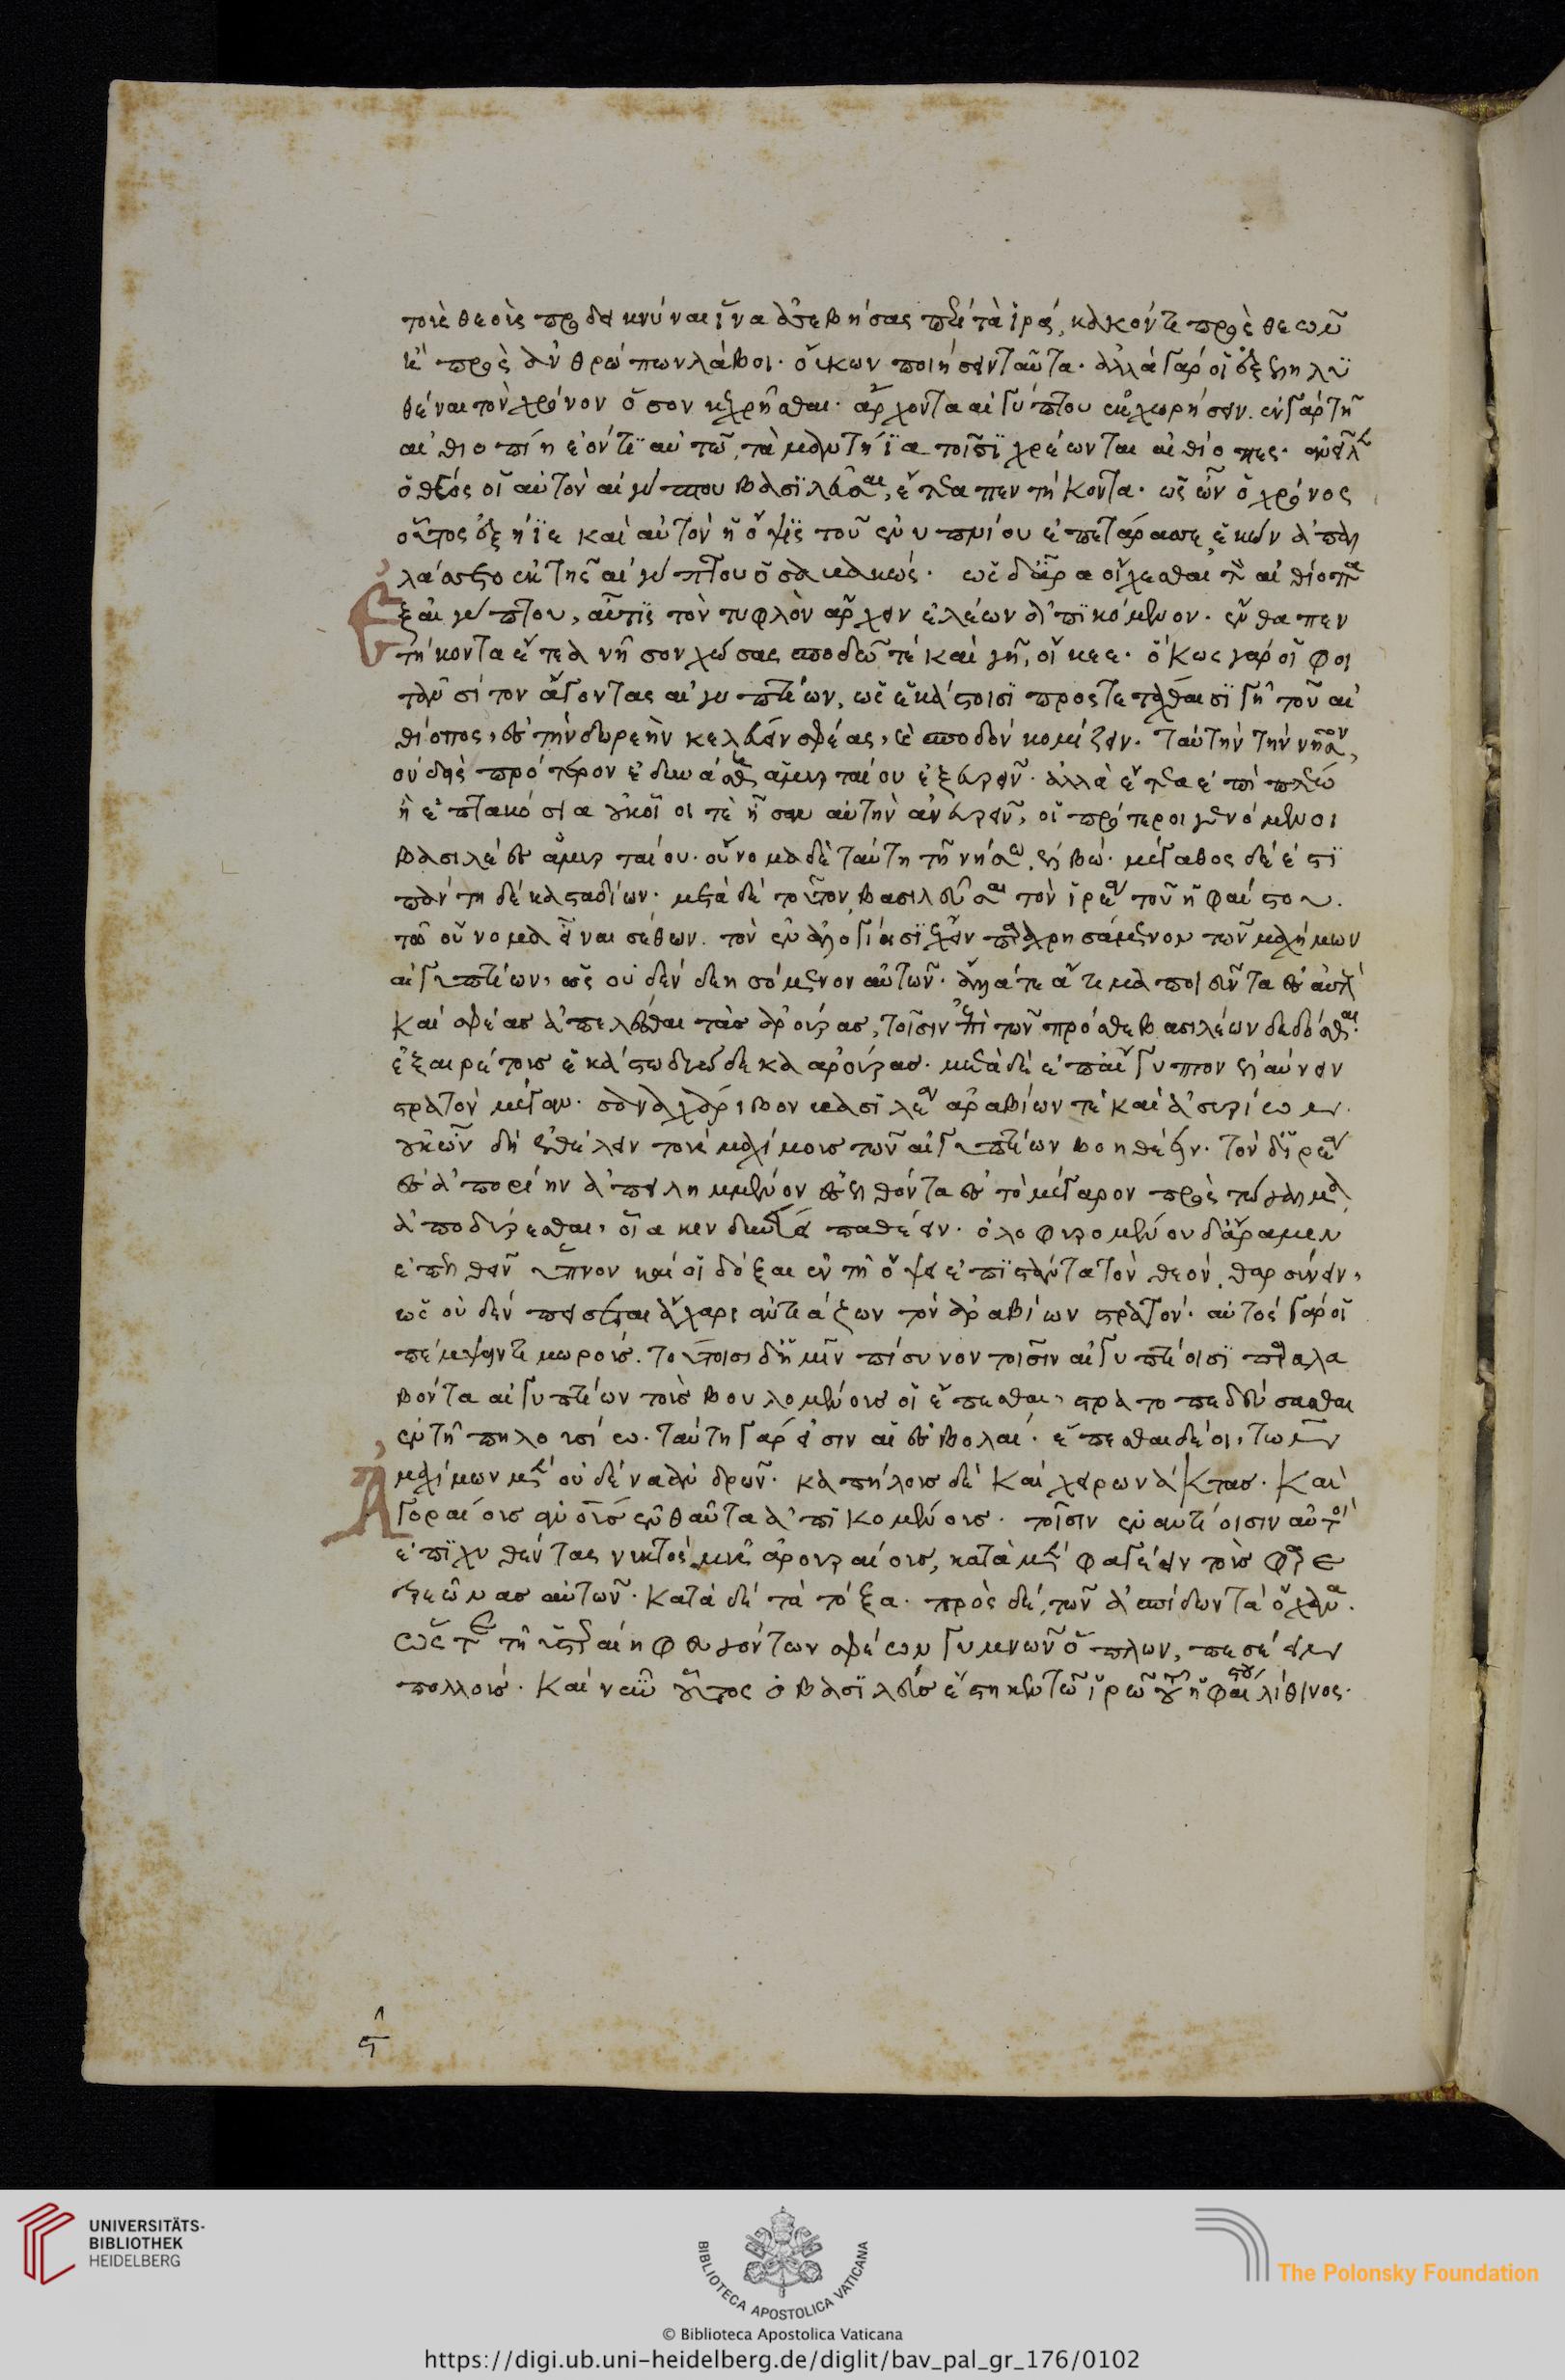 τοὺς θεοὺς προδεικνύναι ἵνα ἀσεβήσας περὶ τὰ ἱρὰ, κακόν τε πρὸς θεῶν
ἢ πρὸς ἀνθρώπων λάβοι· οὔκων ποιήσειν ταῦτα· ἀλλὰ γάρ οἱ ἐξεληλυ
θέναι τὸν χρόνον ὅσον κεχρῆσθαι· ἄρχοντα αἰγύπτου ἐκχωρήσειν. ἐν γὰρ τῆ
αἰθιοπίη ἐόντι αὐτῶ, τὰ μαντήϊα τοῖσϊ χρέωνται αἰθίοπες· ἀνεῖλε
ὁ θεός οἱ αὐτὸν αἰγύπτου βασϊλεῦσαι, ἔτεα πεντήκοντα· ὡς ὦν ὁ χρόνος
οὗτος ἐξήϊε καὶ αὐτὸν ἡ ὄψϊς τοῦ ἐνυπνίου ἐπετάρασσε, ἑκὼν ἀπαλ
λάσσετο ἐκ τῆς αἰγύπτου ὁ σαβακώς· ὡς δ' ἄρα οἴχεσθαι τὸν αἰθίοπα
ἐξ αἰγύπτου, αὖτις τὸν τυφλὸν ἄρχειν ἐλέων ἀπϊκόμενον· ἔνθα πεν
τήκοντα ἔτεα νῆσον χώσας σποδῶ τὲ καὶ γῆ, οἴκεε· ὅκως γάρ οἱ φοι
τᾶν σίτον ἄγοντας αἰγυπτίων, ὡς ἑκάστοισϊ προστετάχθαι σϊγῆ τοῦ αἰ
θίοπος, ἐς τὴν δωρεὴν κελεύειν σφέας, καὶ σποδὸν κομίζειν. ταύτην τὴν νῆσον,
οὐδεὶς πρότερον ἐδυνάσθη ἀμυρταίου ἐξευρεῖν· ἀλλὰ ἔτεα ἐπὶ πλέω
ἢ ἑπτακόσια οὐκ οἷοι τὲ ἦσαν αὐτὴν ἀνευρεῖν, οἱ πρότεροι γενόμενοι
βασιλέες ἀμυρταίου. οὔνομα δὲ ταύτη τῆ νήσω, ἐλβώ· μέγαθος δέ ἐστϊ
πάντη δέκα σταδίων· μετὰ δὲ τοῦτον, βασιλεῦσαι τὸν ἱρέα τοῦ ἡφαίστου.
τῶ οὔνομα εἶναι σέθων. τὸν ἐν ἀλογίησϊ ἔχειν παραχρησάμενον τῶν μαχήμων
αἰγυπτίων, ὡς οὐδὲν δεησόμενον αὐτῶν. ἄλλα τε ἄτιμα ποιεῦντα ἐς αὐτοὺς
καὶ σφέας ἀπελέσθαι τὰς ἀρούρας, τοῖσιν ἐπὶ τῶν πρόσθε βασιλέων δεδόσθαι
ἐξαιρέτους ἑκάστω δυώδεκα ἀρούρας. μετὰ δὲ ἐπ' αἴγυπτον ἐλαύνειν
στρατὸν μέγαν. σαναχάριβον βασϊλέα ἀραβίων τὲ καὶ ἀσυρίων.
οὐκ ὦν δὴ ἐθέλειν τοὺς μαχίμους τῶν αἰγυπτίων βοηθέειν. τὸν δ' ἱρέα
ἐς ἀπορίην ἀπειλημμένον ἐσελθόντα ἐς τὸ μέγαρον πρὸς τὤγαλμα
ἀποδύρεσθαι, οἷα κινδυνεύει παθέειν. ὀλοφυρόμενον δ' ἄρα μιν
ἐπελθεῖν ὕπνον καὶ οἱ δόξαι ἐν τῆ ὄψει ἐπϊστάντα τὸν θεὸν, θαρσύνειν,
ὡς οὐδὲν πείσεται ἄχαρι ἀντιάζων τὸν ἀραβίων στρατόν· αὐτὸς γάρ οἱ
πέμψειν τιμωρούς. τούτοισι δή μιν πίσυνον τοῖσιν αἰγυπτίοισϊ παραλα
βόντα αἰγυπτίων τοὺς βουλομένους οἱ ἕπεσθαι, στρατοπεδεύσασθαι
ἐν τῆ πηλουσίω. ταύτη γάρ εἰσιν αἱ ἐσβολαί. ἕπεσθαι δέ οἱ, τῶν
μαχίμων μὲν οὐδένα ἀνδρῶν. καπήλους δὲ καὶ χειρώνακτας. καὶ
ἀγοραίους ἀνθρώπους ἐνθαῦτα ἀπϊκομένους. τοῖσιν ἐναντίοισιν αὐτοῖσι
ἐπϊχυθέντας νυκτὸς μῦς ἀρουραίους, κατὰ μὲν φαγέειν τοὺς φαρε
τρεῶνας αὐτῶν. κατὰ δὲ τὰ τόξα. πρὸς δὲ, τῶν ἀσπίδων τὰ ὄχανα.
ὥστε τῆ ὑστεραίη φευγόντων σφέων γυμνῶν ὅπλων, πεσέειν
πολλούς. καὶ νῦν οὗτος ὁ βασϊλεὺς ἕστηκε ἐν τῶ ἱρῶ τοῦ ἡφαίστου λίθινος.
UNIVERSITÄTS-
BIBLIOTHEK
HEIDELBERG
BIBLIOTECA APOSTOLICA VATICANA
The Polonsky Foundation
© Biblioteca Apostolica Vaticana
https://digi.ub.uni-heidelberg.de/diglit/bav_pal_gr_176/0102